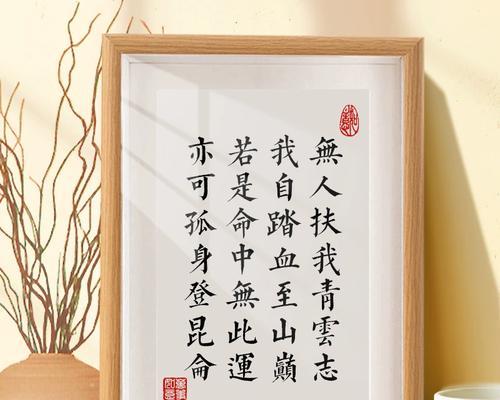 無人扶我青雲志
我自踏血至山巔
若是命中無此運
亦可孤身登昆侖